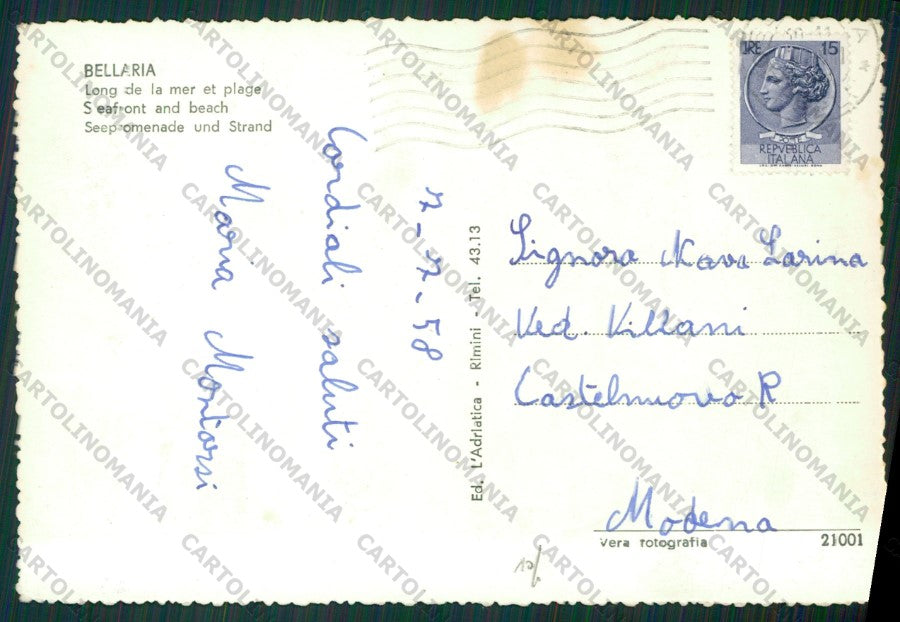 BELLARIA
Long de la mer et plage
Seafront and beach
Seepromenade und Strand
7-7-58
Cordiali saluti
Maria Montorsi
Ed. L'Adriatica - Rimini - Tel. 43.13
LIRE 15
REPVBBLICA
ITALIANA
Signora Nava Larina
Ved. Villani
Castelnuovo R
Modena
Vera fotografia
21001
CARTOLINOMANIA